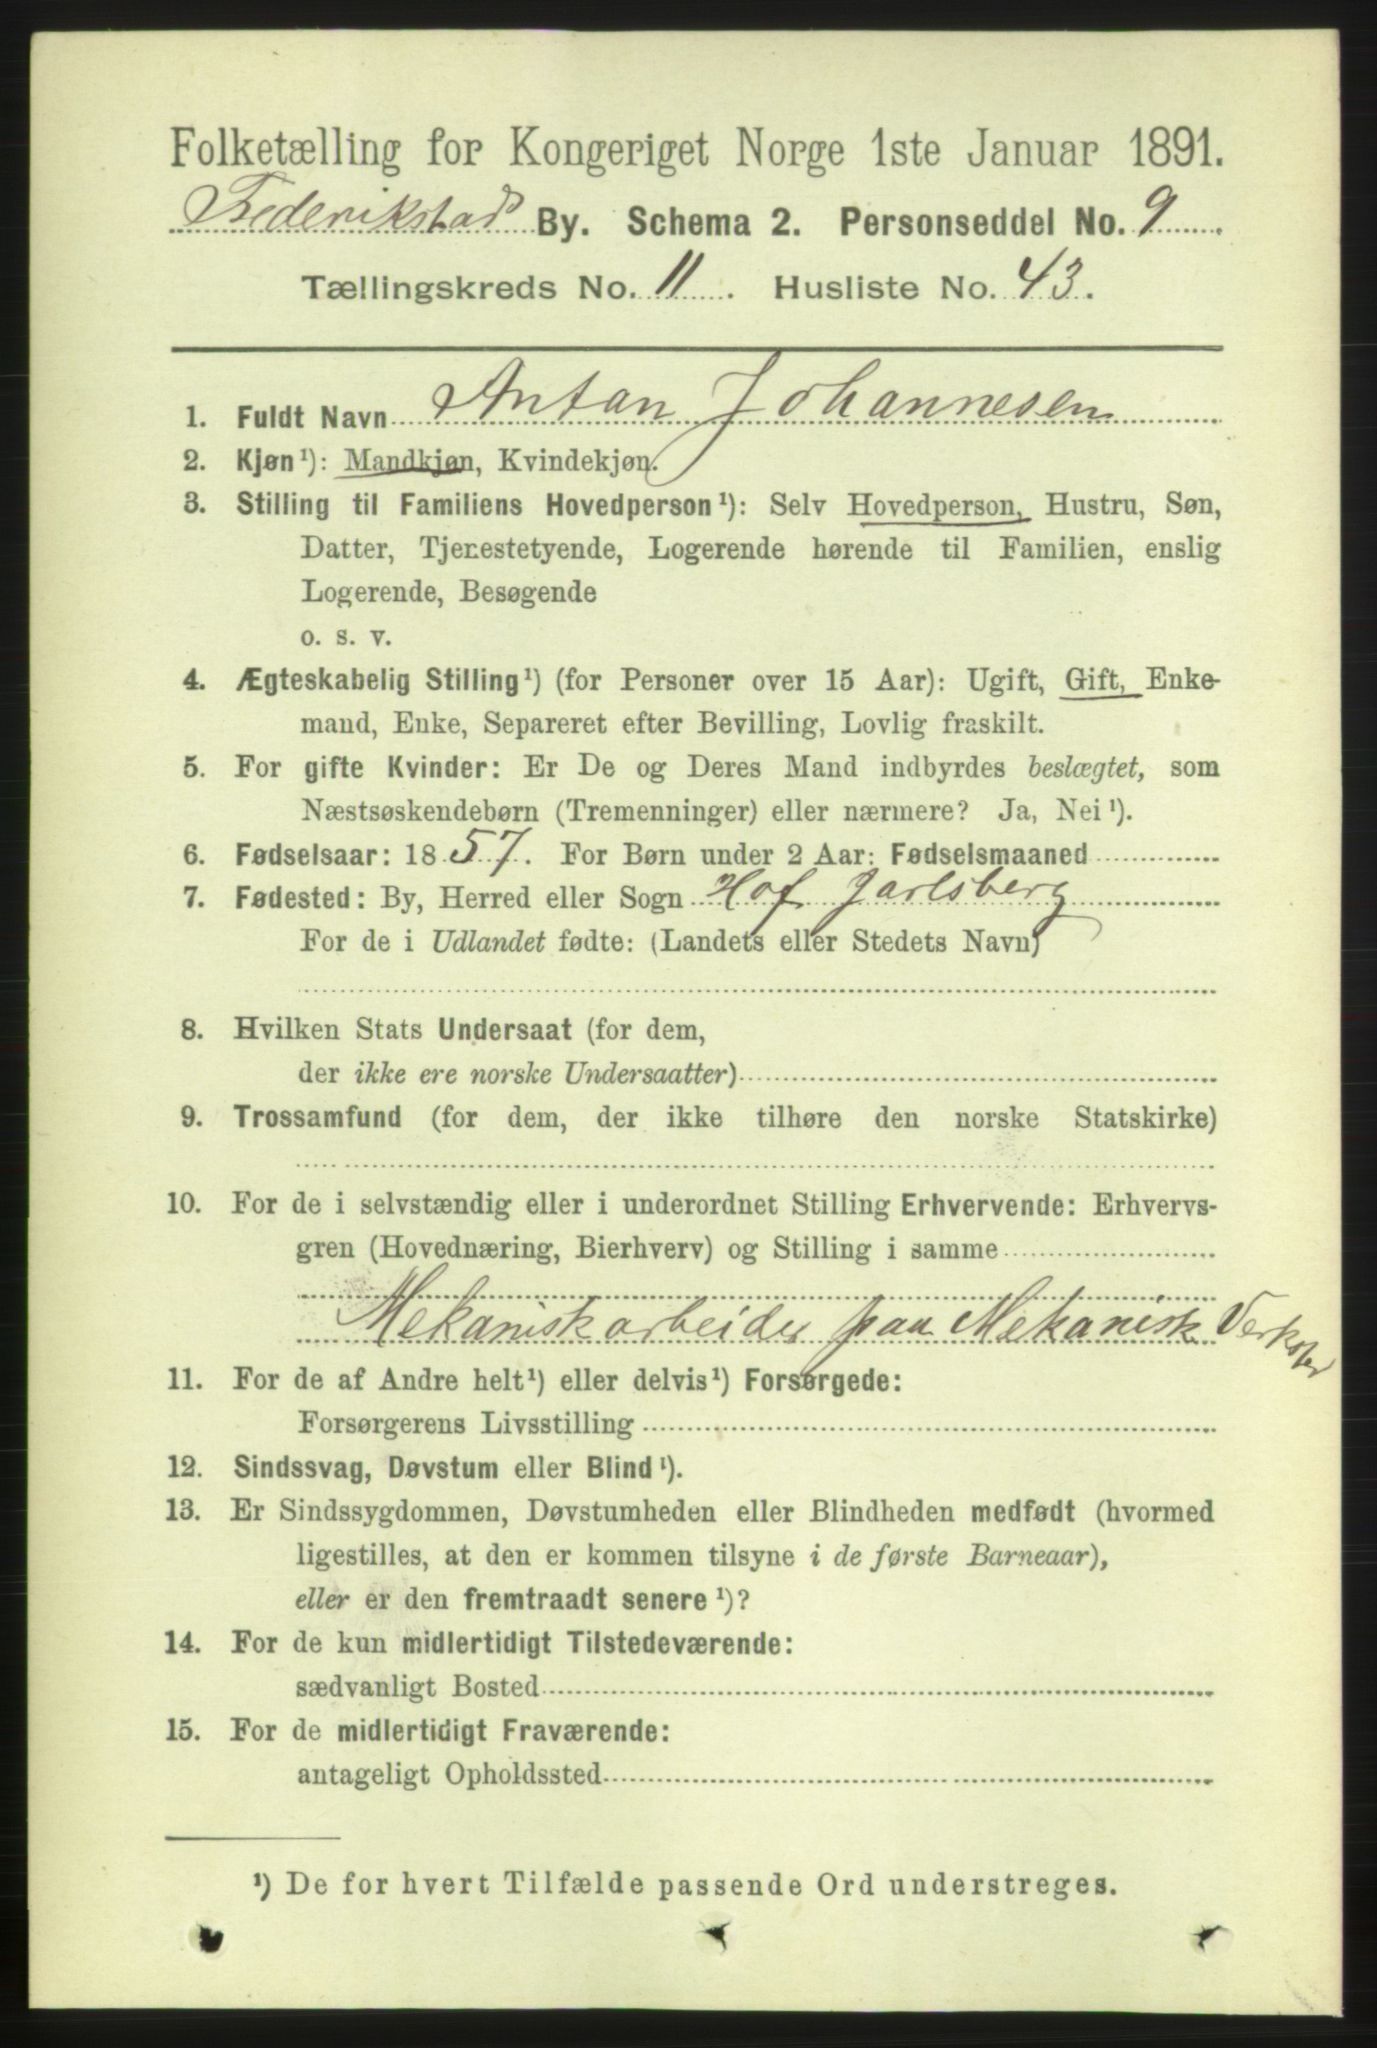 Folketælling for Kongeriget Norge 1ste Januar 1891.
Frederikstad By. Schema 2. Personseddel No. 9
Tællingskreds No. 11. Husliste No. 43.
1. Fuldt Navn Antan Johannesen
2. Kjøn¹): Mandkjøn, Kvindekjøn.
3. Stilling til Familiens Hovedperson¹): Selv Hovedperson, Hustru, Søn,
Datter, Tjenestetyende, Logerende hørende til Familien, enslig
Logerende, Besøgende
o. s. v.
4. Ægteskabelig Stilling¹) (for Personer over 15 Aar): Ugift, Gift, Enke-
mand, Enke, Separeret efter Bevilling, Lovlig fraskilt.
5. For gifte Kvinder: Er De og Deres Mand indbyrdes beslægtet, som
Næstsøskendebørn (Tremenninger) eller nærmere? Ja, Nei¹).
6. Fødselsaar: 1857. For Børn under 2 Aar: Fødselsmaaned
7. Fødested: By, Herred eller Sogn Hof Jarlsberg
For de i Udlandet fødte: (Landets eller Stedets Navn)
8. Hvilken Stats Undersaat (for dem,
der ikke ere norske Undersaatter)
9. Trossamfund (for dem, der ikke tilhøre den norske Statskirke)
10. For de i selvstændig eller i underordnet Stilling Erhvervende: Erhvervs-
gren (Hovednæring, Bierhverv) og Stilling i samme
Mekanisk arbeider paa Mekanisk Verksted
11. For de af Andre helt¹) eller delvis¹) Forsørgede:
Forsørgerens Livsstilling
12. Sindssvag, Døvstum eller Blind¹).
13. Er Sindssygdommen, Døvstumheden eller Blindheden medfødt (hvormed
ligestilles, at den er kommen tilsyne i de første Barneaar),
eller er den fremtraadt senere¹)?
14. For de kun midlertidigt Tilstedeværende:
sædvanligt Bosted
15. For de midlertidigt Fraværende:
antageligt Opholdssted
¹) De for hvert Tilfælde passende Ord understreges.